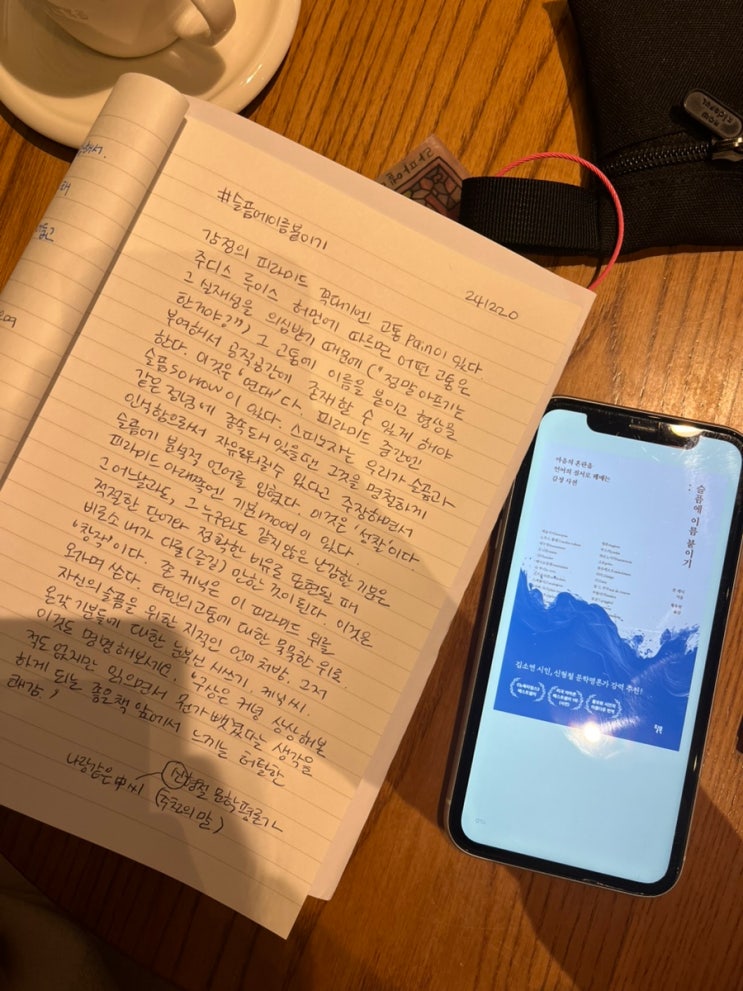 #슬픔에이름붙이기
241220
감정의 피라미드 꼭대기엔 고통 pain이 있다.
주디스 루이스 허먼에 따르면 어떤 고통은
그 실재성을 의심받기 때문에 ("정말 아프기는
한거야?"), 그 고통에 이름을 붙이고 형상을
부여해서 공적공간에 존재할 수 있게 해야
한다. 이것은 '연대'다. 피라미드 중간엔
슬픔 sorrow이 있다. 스피노자는 우리가 슬픔과
같은 정념에 종속돼 있을땐 그것을 명철하게
인식함으로써 자유로워질수 있다고 주장하면서
슬픔에 분석적 언어를 입혔다. 이것은 '성찰'이다
피라미드 아래쪽엔 기분 mood이 있다.
그어느날과도, 그 누구와도 같지않은 난감한 기분은
적절한 단어와 정확한 비유로 표현될 때
비로소 내가 다룰(줄길) 만한 것이 된다. 이것은
'창작'이다. 존 케닉은 이 피라미드 위를
오가며 쓴다. 타인의고통에 대한 묵묵한 위로,
자신의 슬픔을 위한 지적인 언어 처방, 그저
온갖 기분들에 대한 눈부신 시쓰기. 케닉씨,
이것도 명명해보시면. '구상은 커녕 상상해본
적도 없지만 읽으면서 뭔가 뺏겼다는 생각을
하게 되는 좋은책 앞에서 느끼는 허탈한
쾌감,'
나랑같은 申씨
신형철 문학평론가
(추천의 말)
마음의 혼란을
언어의 질서로 꿰매는
감정 사전
슬픔에 이름 붙이기
존 케닉
지음
황유원
옮김
김소연 시인, 신형철 문학평론가 강력 추천!